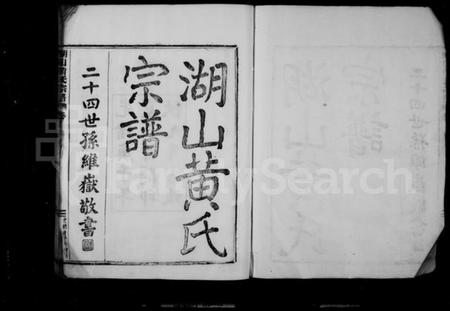 湖山黄氏
宗譜
二十四世孫維嶽敬書
FamilySearch